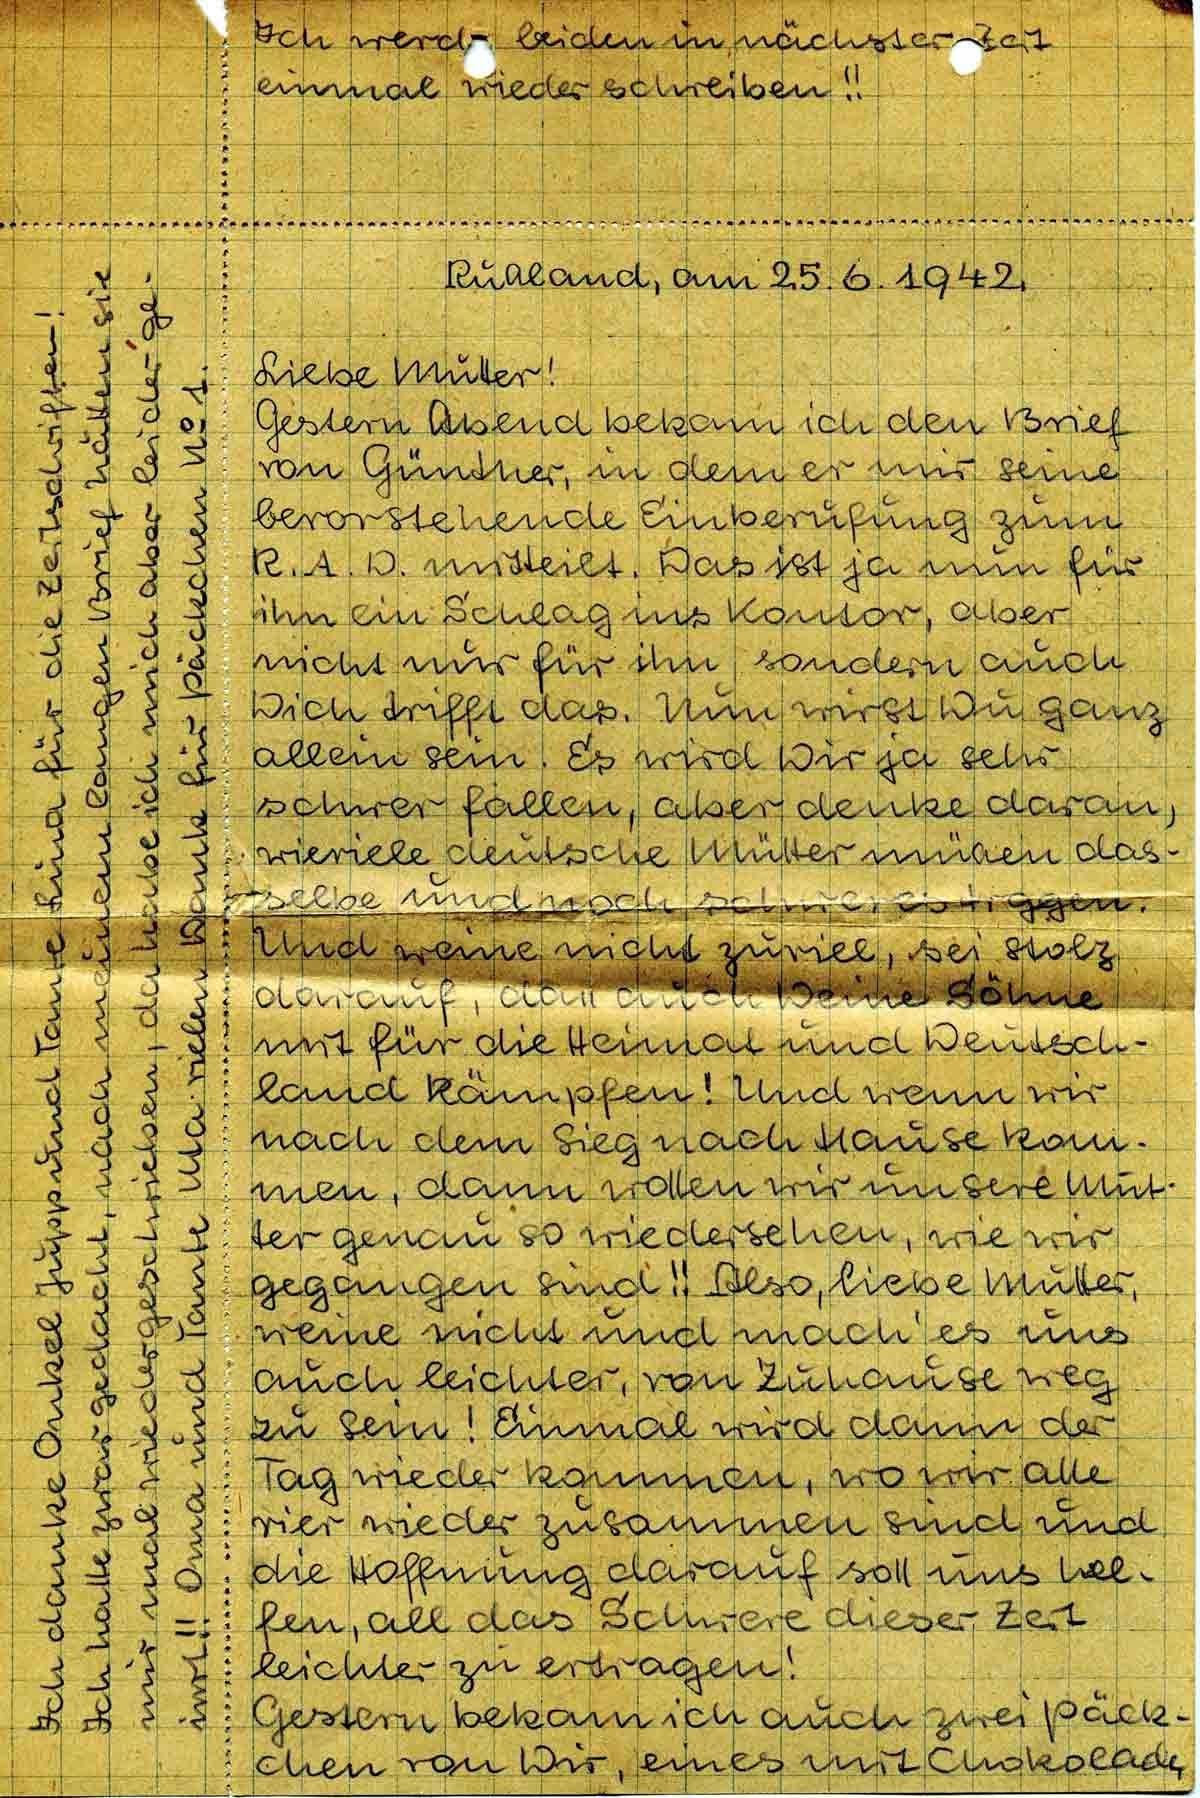 Ich werde beiden in nächster Zeit
einmal wieder schreiben!!
Rußland, am 25.6.1942.
Liebe Mutter!
Gestern Abend bekam ich den Brief
von Günther, in dem er mir seine
bevorstehende Einberufung zum
R.A.D. mitteilt. Das ist ja nun für
ihn ein Schlag ins Kontor, aber
nicht nur für ihn sondern auch
Dich trifft das. Nun wirst Du ganz
allein sein. Es wird Dir ja sehr
schwer fallen, aber denke daran,
wieviele deutsche Mütter müßen das-
selbe und noch schwereres traggen.
Und weine nicht zuviel, sei stolz
darauf, daß auch Deine Söhne
mit für die Heimat und Deutsch-
land kämpfen! Und wenn wir
nach dem Sieg nach Hause kom-
men, dann wollen wir unsere Mut-
ter genau so wiedersehen, wie wir
gegangen sind!! Also, liebe Mutter,
weine nicht und mach' es uns
auch leichter, von Zuhause weg
zu sein! Einmal wird dann der
Tag wieder kommen, wo wir alle
vier wieder zusammen sind und
die Hoffnung darauf soll uns hel-
fen, all das Schwere dieser Zeit
leichter zu ertragen!
Gestern bekam ich auch zwei Päck-
chen von Dir, eines mit Chokolade,
Ich danke Onkel Jupp und Tante Lina für die Zeitschriften!
Ich hatte zwar gedacht, nach meinem langen Brief hätten sie
mir mal wiedergeschrieben, da habe ich mich aber leider ge-
irrt!! Oma und Tante Ma vielen Dank für Päckchen No 1.